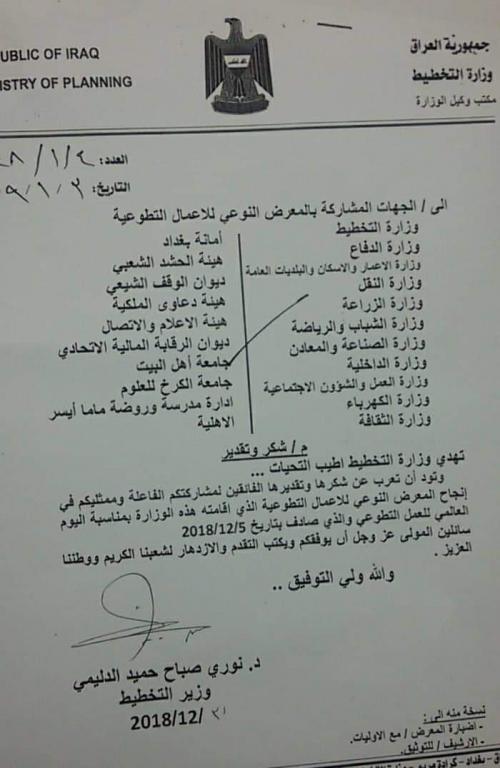 UBLIC OF IRAQ
ISTRY OF PLANNING
جمهورية العراق
وزارة التخطيط
مكتب وكيل الوزارة
العدد: ٨/١/٤
التاريخ:
الى / الجهات المشاركة بالمعرض النوعي للاعمال التطوعية
وزارة التخطيط
وزارة الدفاع
وزارة الاعمار والاسكان والبلديات العامة
وزارة النقل
وزارة الزراعة
وزارة الشباب والرياضة
وزارة الصناعة والمعادن
وزارة الداخلية
وزارة العمل والشؤون الاجتماعية
وزارة الكهرباء
وزارة الثقافة
أمانة بغداد
هيئة الحشد الشعبي
ديوان الوقف الشيعي
هيئة دعاوى الملكية
هيئة الاعلام والاتصال
ديوان الرقابة المالية الاتحادي
جامعة أهل البيت
جامعة الكرخ للعلوم
ادارة مدرسة وروضة ماما أيسر
الاهلية
م / شكر وتقدير
تهدي وزارة التخطيط اطيب التحيات ...
وتود أن تعرب عن شكرها وتقديرها الفائقين لمشاركتكم الفاعلة وممثليكم في
إنجاح المعرض النوعي للاعمال التطوعية الذي اقامته هذه الوزارة بمناسبة اليوم
العالمي للعمل التطوعي والذي صادف بتاريخ 2018/12/5
سائلين المولى عز وجل أن يوفقكم ويكتب التقدم والازدهار لشعبنا الكريم ووطننا
العزيز .
والله ولي التوفيق ..
د. نوري صباح حميد الدليمي
وزير التخطيط
2018/12/ ٣١
نسخة منه الى :
- اضبارة المعرض / مع الاوليات.
- الارشيف / للتوثيق.